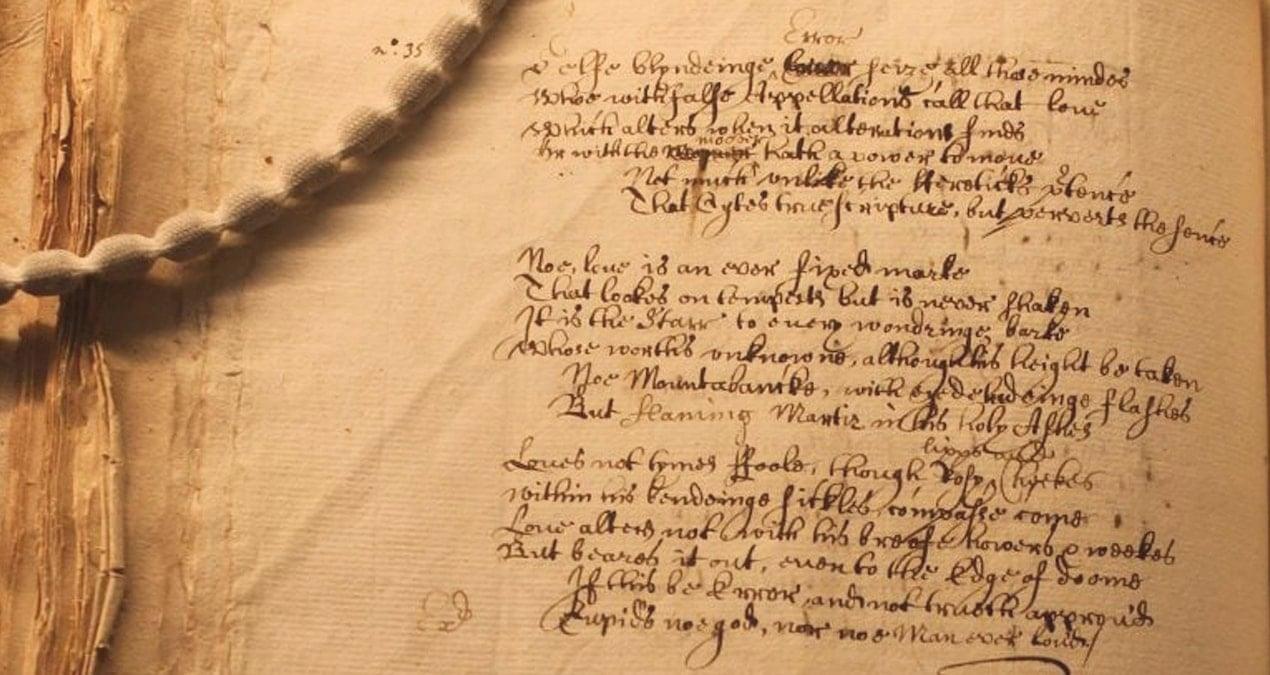 n.° 35
Error
Selfe blyndeinge, seize all those mindes
Whoe with false Appellations call that love
Which alters when it alterations finds
mover
Or with the hath a power to move
Not much unlike the Hereticks p̄tence
That Cytes true scripture, but perverts the sence
Noe, love is an ever fixed marke
That lookes on tempests but is never shaken
It is the Starr to every wondringe barke
Whose worths unknowne, although his height be taken
Noe Mountabancke, with eyedeludeinge flashes
But flaming Martir in his holy Ashes
lipps and
Loves not tymes Foole, though Rosy Cheekes
within his bendeinge sickles compasse come
Love alters not with his breife howers & weekes
But beares it out, even to the Edge of doome
If this be Error and not truth approv'd
Cupids noe god, nor noe Man ever lov'd